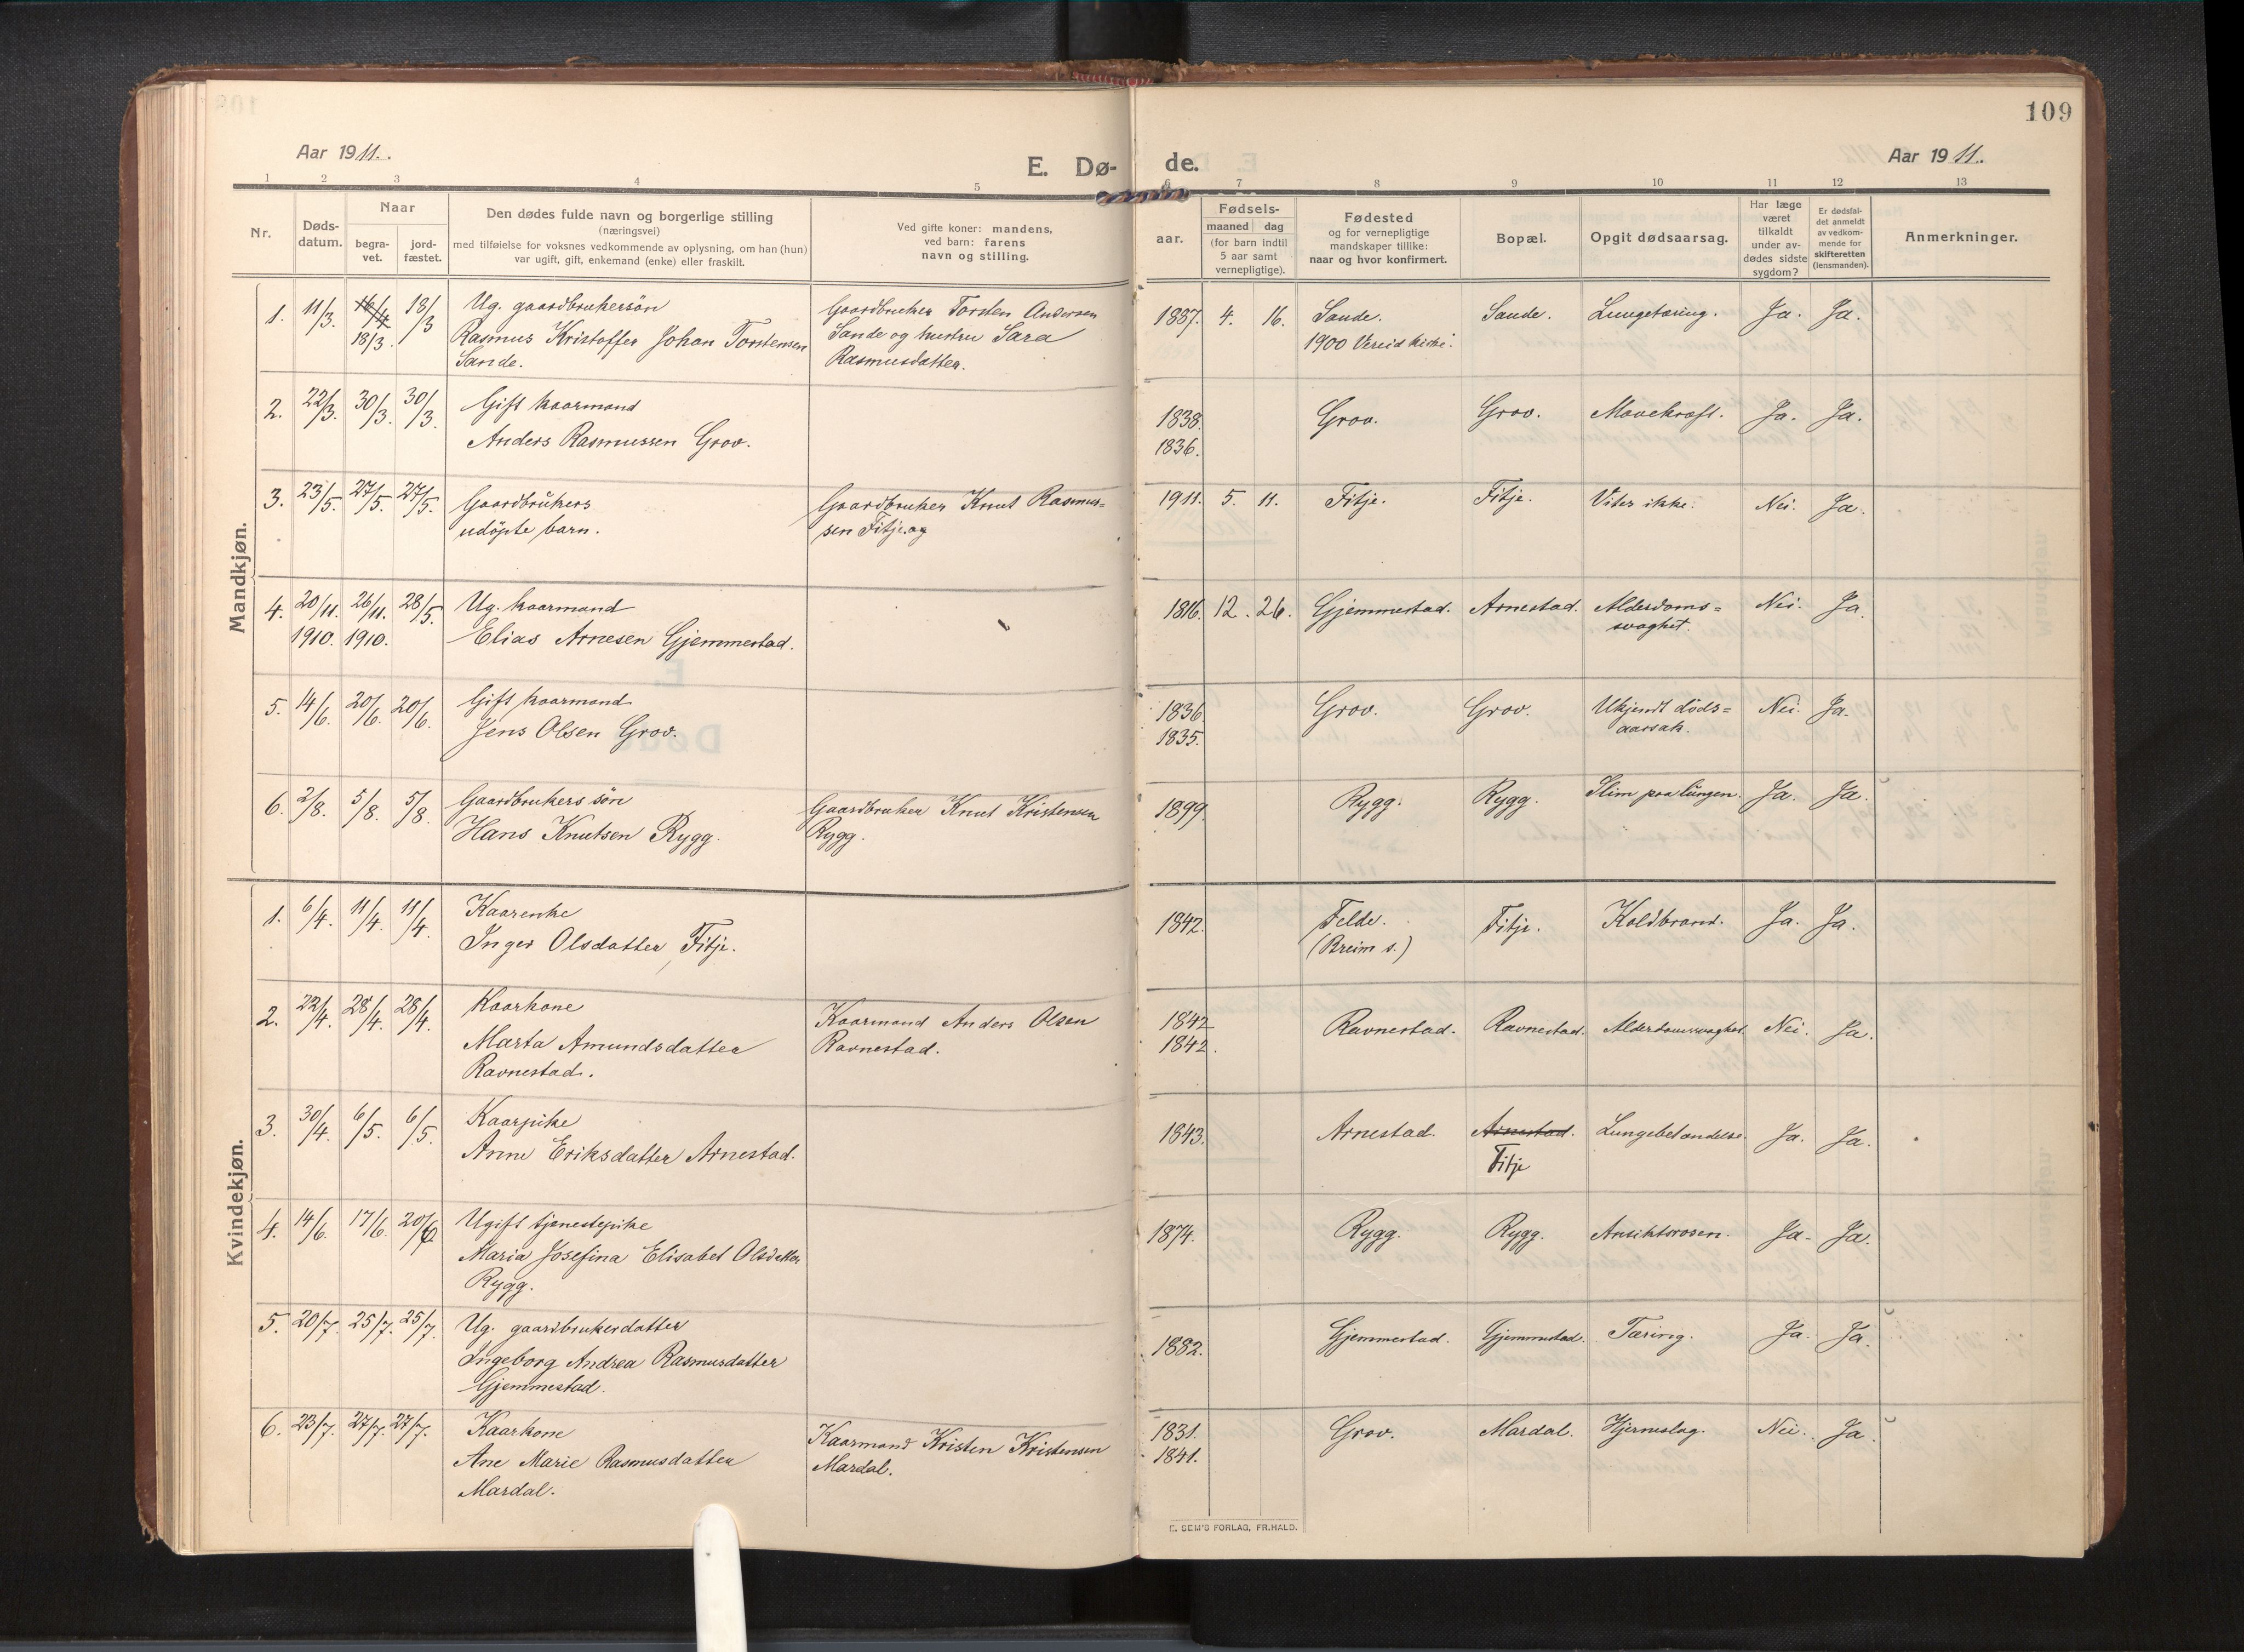 109
Aar 1911.
E. Dø-
de.
Aar 1911.
1 2 3 4 5 6 7 8 9 10 11 12 13
Nr.
Døds-
datum.
Naar
begra-
vet.
jord-
fæstet.
Den dødes fulde navn og borgerlige stilling
(næringsvei)
med tilføielse for voksnes vedkommende av oplysning, om han (hun)
var ugift, gift, enkemand (enke) eller fraskilt.
Ved gifte koner: mandens,
ved barn: farens
navn og stilling.
Fødsels-
aar.
maaned dag
(for barn indtil
5 aar samt
vernepligtige).
Fødested
og for vernepligtige
mandskaper tillike:
naar og hvor konfirmert.
Bopæl.
Opgit dødsaarsag.
Har læge
været
tilkaldt
under av-
dødes sidste
sygdom?
Er dødsfal-
det anmeldt
av vedkom-
mende for
skifteretten
(lensmanden).
Anmerkninger.
Mandkjøn.
1. 11/3. 16/4 18/3. 18/3 Ug. gaardbrukersön
Rasmus Kristoffer Johan Torstensen
Sande.
Gaardbruker Torsten Andersen
Sande og hustru Sara
Rasmusdatter.
1887. 4. 16. Sande. Sande. Lungetæring. Ja. Ja.
1900 Vereid kirke.
2. 22/3. 30/3. 30/3. Gift kaarmand
Anders Rasmussen Grov.
1838. Grov. Grov. Mavekræft. Ja. Ja.
1836.
3. 23/5. 27/5. 27/5. Gaardbrukers
udöpte barn.
Gaardbruker Knut Rasmus-
sen Fitje og
1911. 5. 11. Fitje. Fitje. Vites ikke. Nei. Ja.
4. 20/11. 26/11. 28/5. Ug. kaarmand
1910. 1910. Elias Arnesen Gjemmestad.
1816. 12. 26. Gjemmestad. Arnestad. Alderdoms=
svaghet. Nei. Ja.
5. 14/6. 20/6. 20/6. Gift kaarmand
Jens Olsen Grov.
1836. Grov. Grov. Ukjendt döds=
aarsak. Nei. Ja.
1835.
6. 2/8. 5/8. 5/8. Gaardbrukers sön
Hans Knutsen Rygg.
Gaardbruker Knut Kristensen
Rygg.
1899. Rygg. Rygg. Slim paa lungen. Ja. Ja.
Kvindekjøn.
1. 6/4. 11/4. 11/4. Kaarenke
Inger Olsdatter Fitje.
1842. Felde. Fitje. Koldbrand. Ja. Ja.
(Breim s.)
2. 22/4. 28/4. 28/4. Kaarkone
Marta Amundsdatter
Ravnestad.
Kaarmand Anders Olsen
Ravnestad.
1842 Ravnestad. Ravnestad. Alderdomssvaghet. Nei. Ja.
1842.
3. 30/4. 6/5. 6/5. Kaarpike
Anne Eriksdatter Arnestad.
1843. Arnestad. Arnestad. Lungebetændelse. Ja. Ja.
Fitje
4. 14/6. 17/6. 20/6 Ugift tjenestepike
Maria Josefina Elisabet Olsdatter
Rygg.
1874. Rygg. Rygg. Ansiktsrosen. Ja- Ja.
5. 20/7. 25/7. 25/7. Ug. gaardbrukerdatter
Ingeborg Andrea Rasmusdatter
Gjemmestad.
1882. Gjemmestad. Gjemmestad. Tæring. Ja. Ja.
6. 23/7. 27/7. 27/7. Kaarkone
Ane Marie Rasmusdatter
Mardal.
Kaarmand Kristen Kristensen
Mardal.
1831. Grov. Mardal. Hjerneslag. Nei. Ja.
1841.
E. SEM'S FORLAG, FR.HALD.